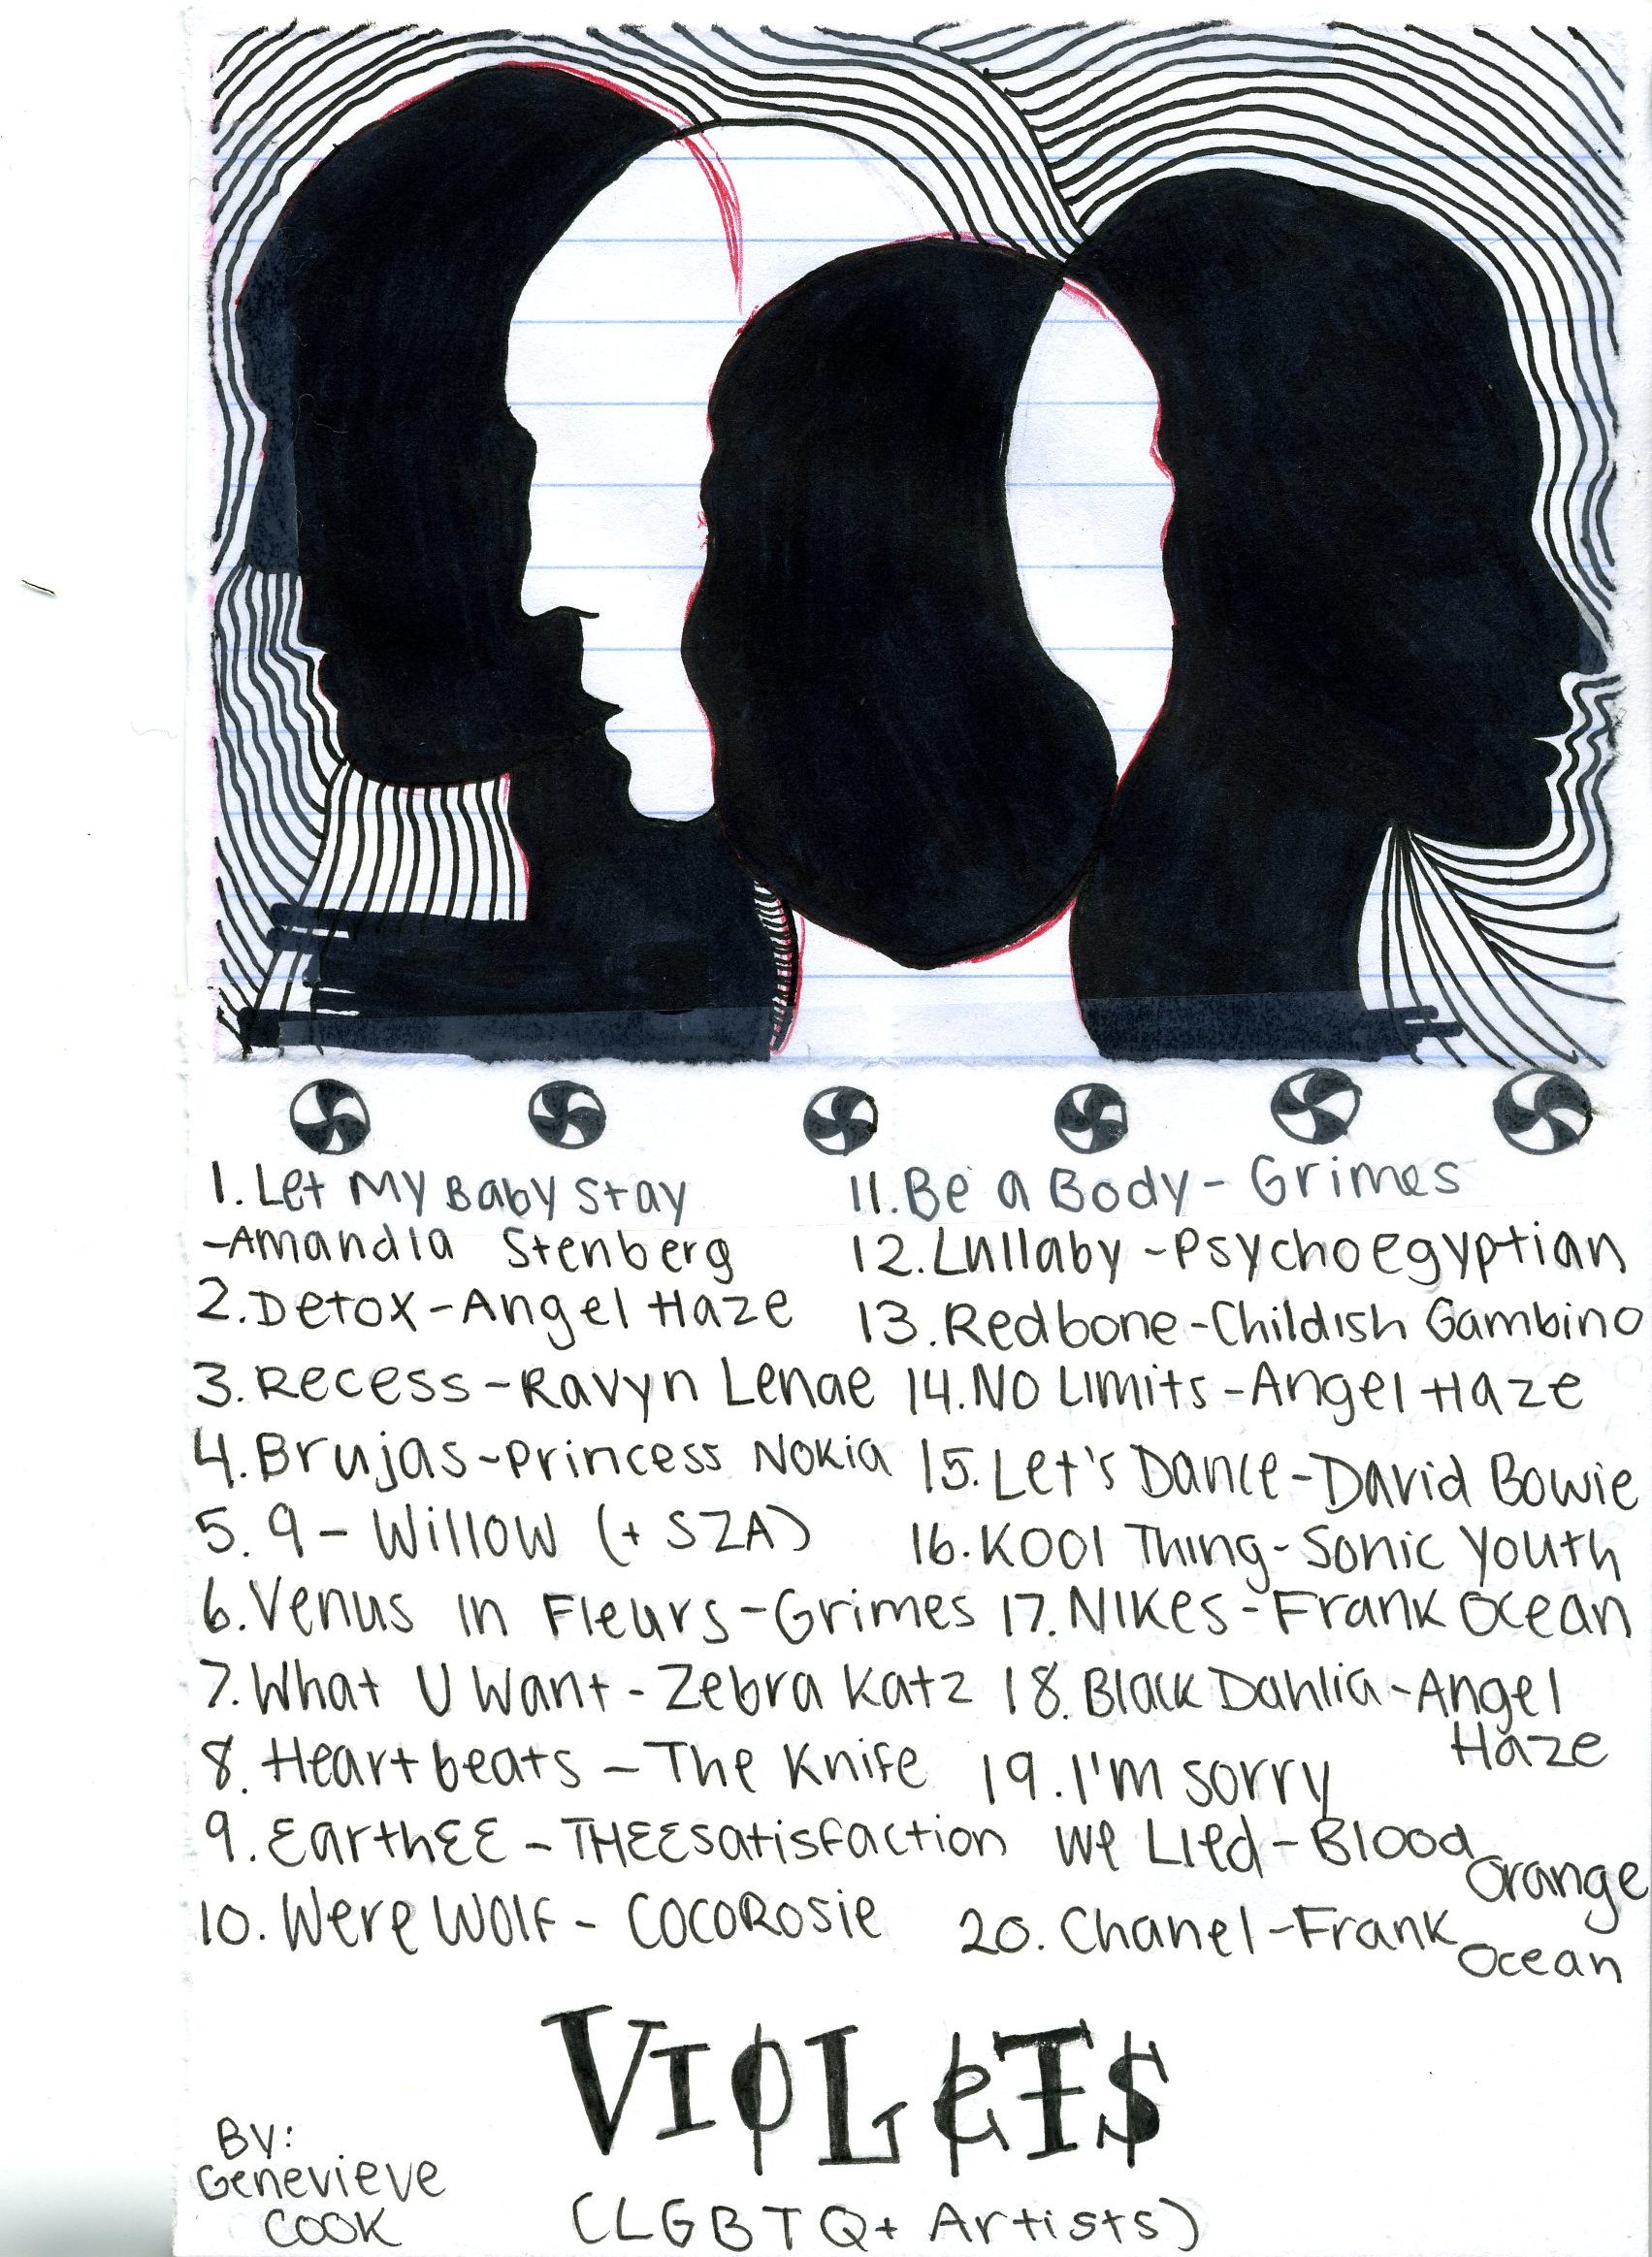 1. Let My Baby Stay
-Amandla Stenberg
2. Detox - Angel Haze
3. Recess - Ravyn Lenae
4. Brujas - Princess Nokia
5. 9 - Willow (+ SZA)
6. Venus in Fleurs - Grimes
7. What U Want - Zebra Katz
8. Heartbeats - The Knife
9. EarthEE - THEESatisfaction
10. WereWolf - CocoRosie
11. Be a Body - Grimes
12. Lullaby - Psychoegyptian
13. Redbone - Childish Gambino
14. No Limits - Angel Haze
15. Let's Dance - David Bowie
16. Kool Thing - Sonic Youth
17. Nikes - Frank Ocean
18. Black Dahlia - Angel
Haze
19. I'm sorry
We Lied - Blood
Orange
20. Chanel - Frank
Ocean
VIOLETS
(LGBTQ+ Artists)
By:
Genevieve
Cook